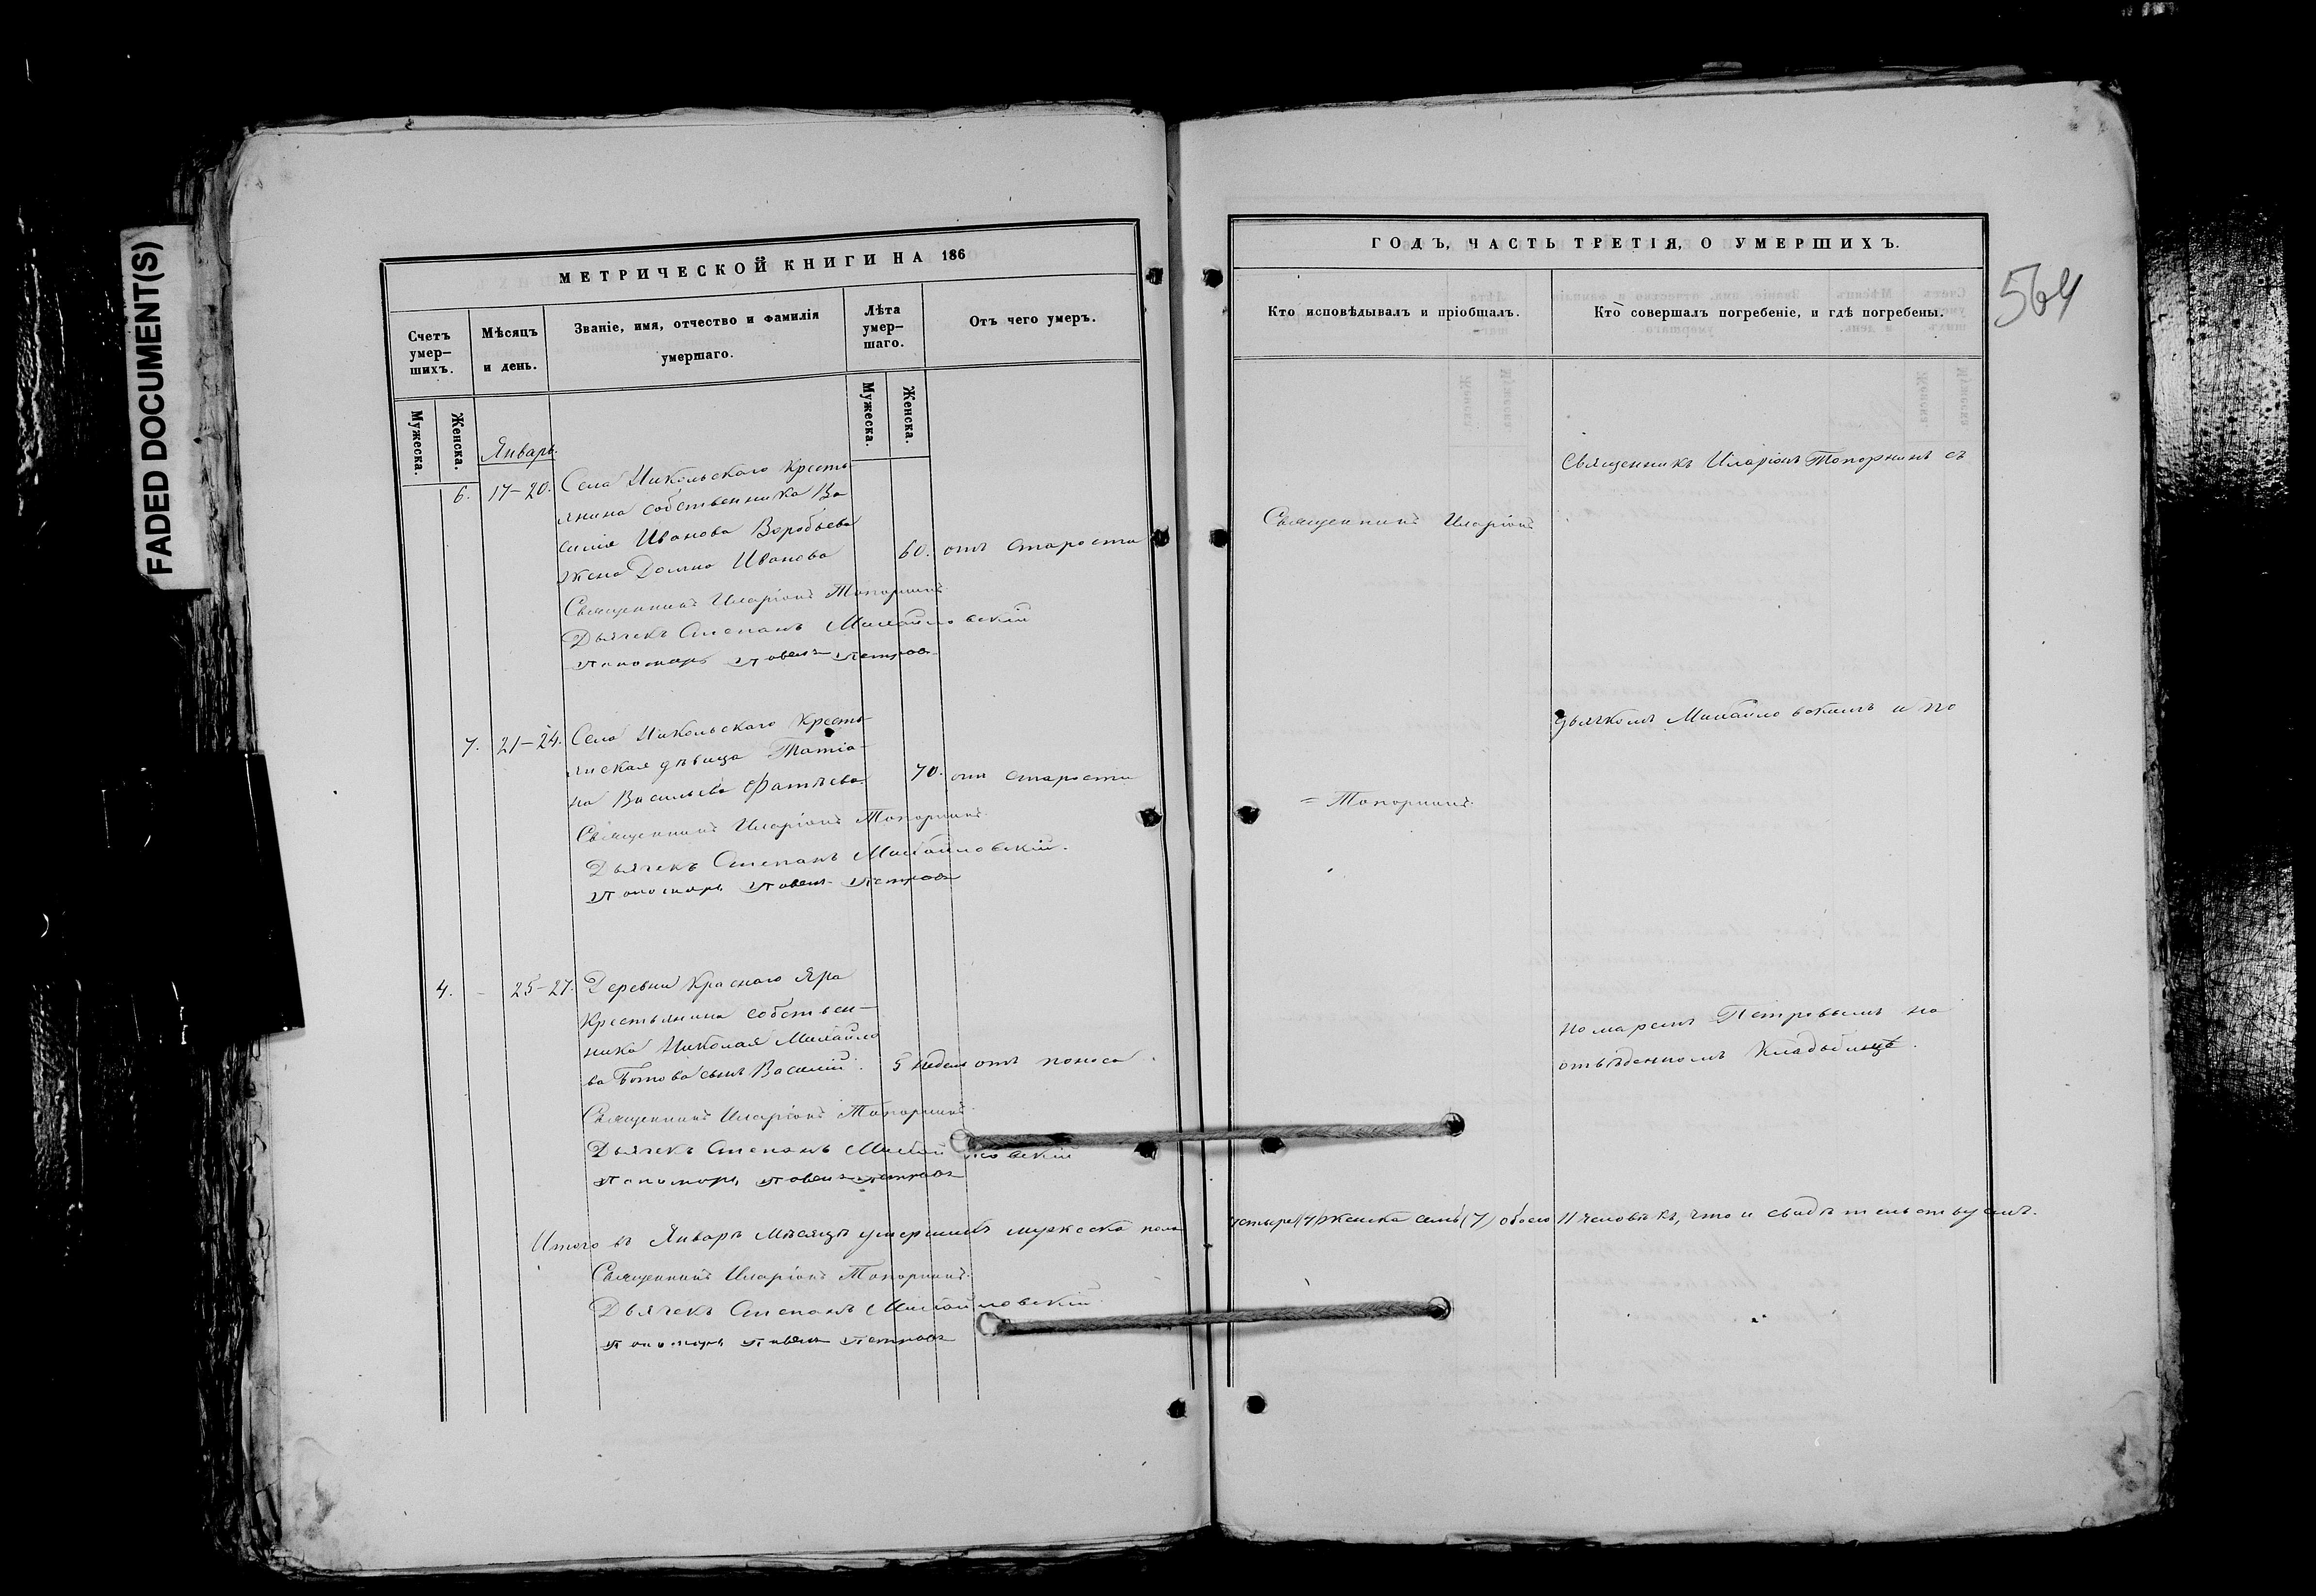 FADED DOCUMENT(S)
МЕТРИЧЕСКОЙ КНИГИ НА 186
Счетъ умер-шихъ.
Мѣсяцъ и день.
Званіе, имя, отчество и фамилія умершаго.
Лѣта умер-шаго.
Отъ чего умеръ.
Мужеска.
Женска.
Мужеска.
Женска.
Январь.
6. 17-20. Села Никольскаго кресть-
янина собственника Ва
силія Иванова Воробьева
жена Домна Иванова 60. отъ старости
Священникъ Иларіонъ Топорнинъ.
Дьячекъ Степанъ Михайловскій
Пономарь Павелъ Петровъ
7. 21-24. Села Никольскаго Кресть-
янская дѣвица Татіа-
на Васильева Фатѣева 70. отъ старости
Священникъ Иларіонъ Топорнинъ.
Дьячекъ Степанъ Михайловскій.
Пономарь Павелъ Петровъ
4. - 25-27. Деревни Краснаго Яра
Крестьянина собствен-
ника Николая Михайло
ва сынъ Василій. 5 недель отъ поноса.
Священникъ Иларіонъ Топорнинъ.
Дьячекъ Степанъ Михайловскій
Пономарь Павелъ Петровъ
Итого въ Январѣ мѣсяцѣ умершихъ мужеска пола четыре (4) женска семь (7) обоего 11 человѣкъ, что и свидѣтельствуемъ.
Священникъ Иларіонъ Топорнинъ.
Дьячекъ Степанъ Михайловскій
Пономарь Павелъ Петровъ
ГОДЪ, ЧАСТЬ ТРЕТІЯ, О УМЕРШИХЪ.
564
Кто исповѣдывалъ и пріобщалъ.
Кто совершалъ погребеніе, и гдѣ погребены.
Священникъ Иларіонъ
= Топорнинъ.
Священникъ Иларіонъ Топорнинъ съ
дьячкомъ Михайловскимъ и по
номаремъ Петровымъ на
отведенномъ Кладбищѣ.